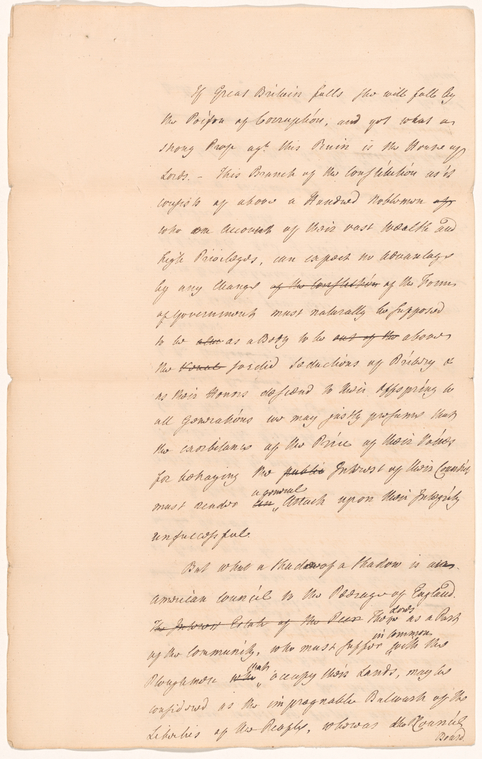 If Great Britain falls she will fall by
the Poison of Corruption, and yet what a
strong Prop agt. this Ruin is the House of
Lords. — This Branch of the Constitution as it
consists of above a Hundred Noblemen
who on Account of their vast Wealth and
high Privileges, can expect no Advantage
by any Change of the Constitution of the Form
of Government must naturally be supposed
to be also as a Body to be out of the above
the sordid Seductions of Bribery &
as their Honors descend to their Offspring to
all Generations we may justly presume that
the exorbitance of the Price of their Votes
for betraying the public Interest of their Country
must render a general Attack upon their Integrity
unsuccessful.
But what a Shadow of a Shadow is an
American Council to the Peerage of England.
The Interest Estate of the Peers Those Lords as a Part
of the Community, who must suffer in common with the
Ploughmen that occupy their Lands, may be
considered as the impregnable Bulwark of the
Liberties of the People, whereas the Council
Board